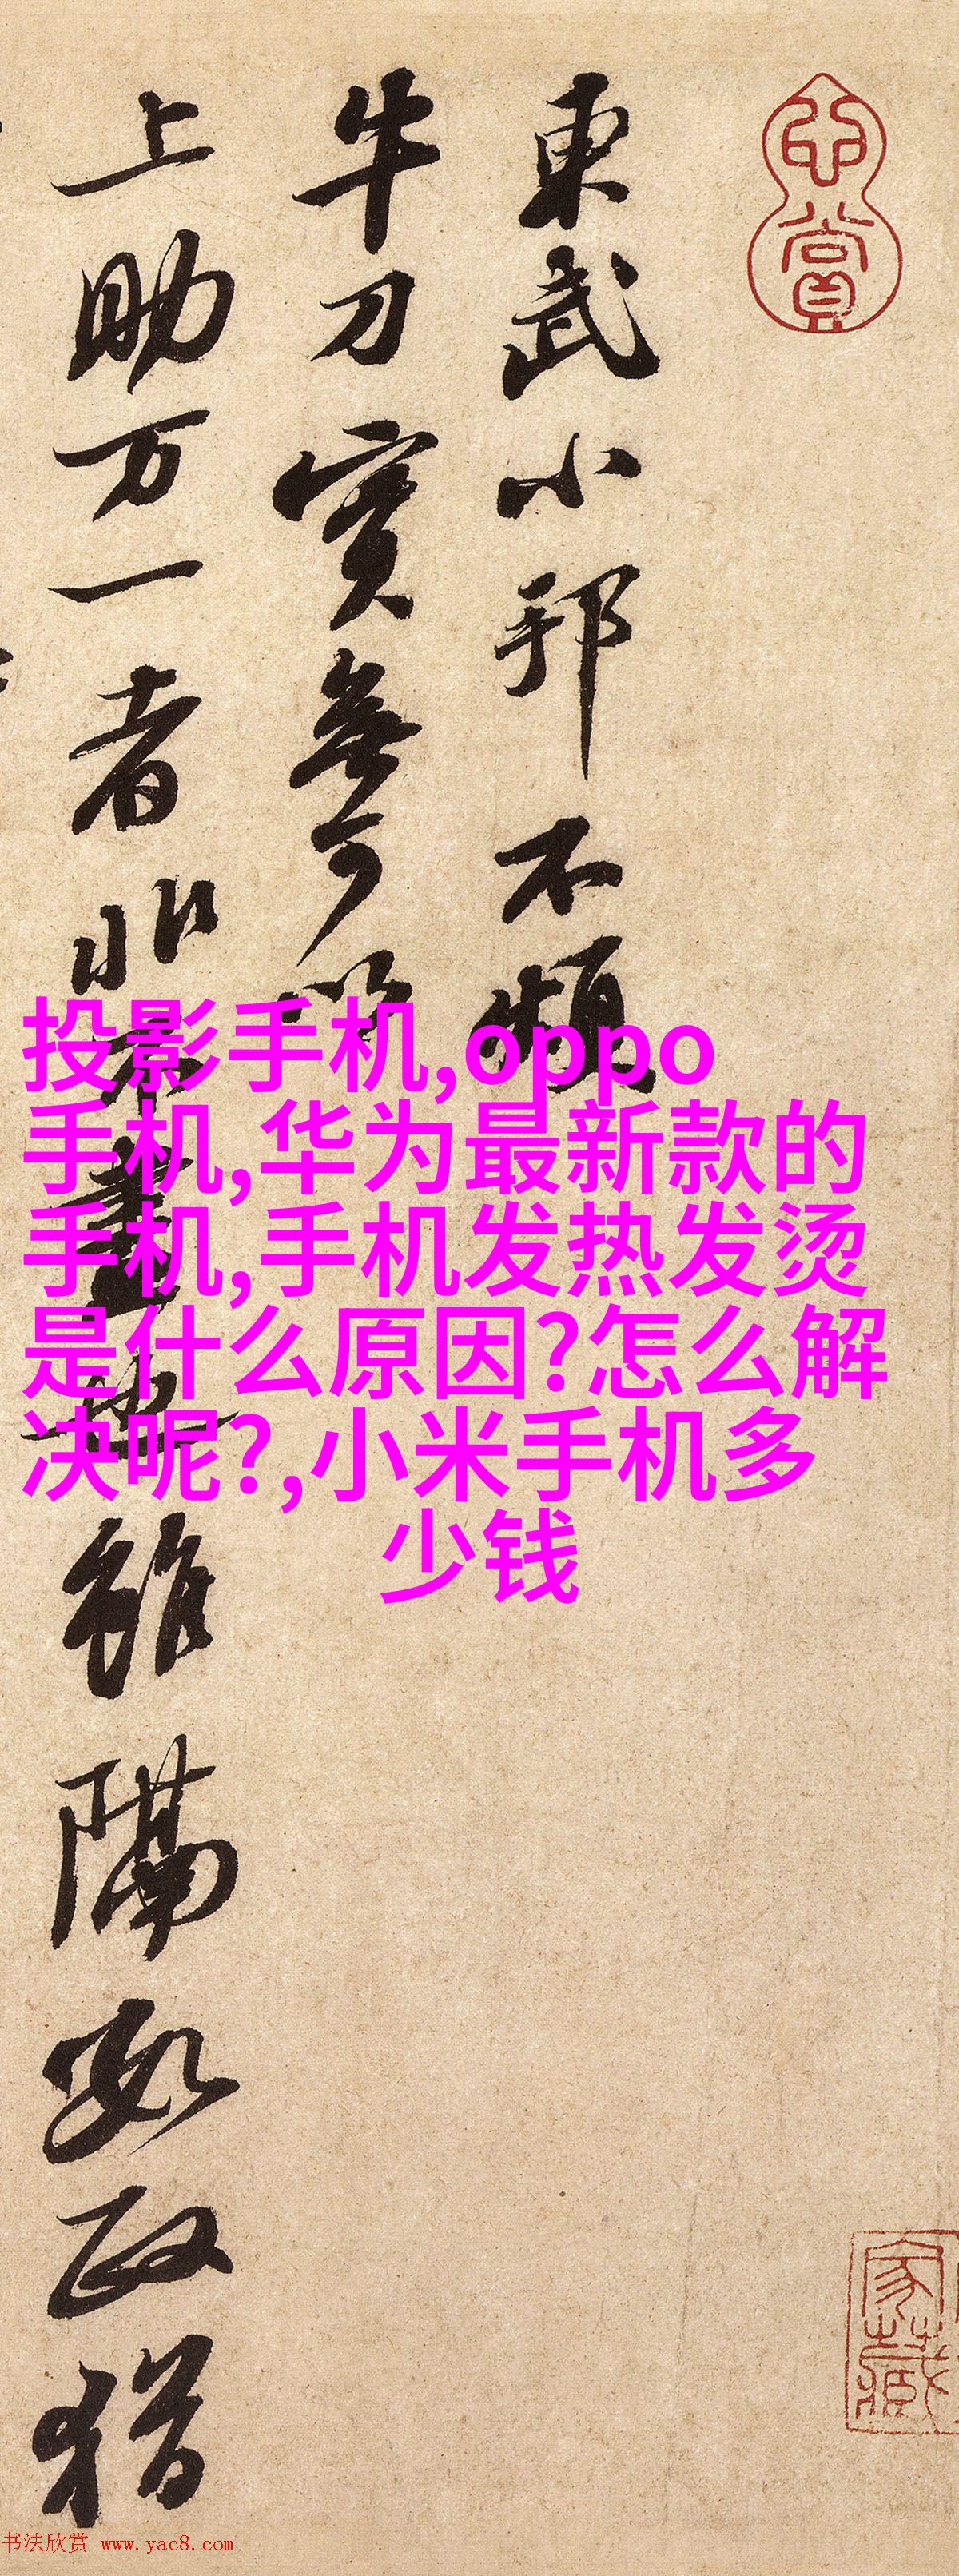 心賞
東武小邦不煩
牛刀實無可以
上助万一者非不盡也雖隔數政猶
家藏
投影手机,oppo
手机,华为最新款的
手机,手机发热发烫
是什么原因?怎么解
决呢?,小米手机多
少钱
书法欣赏 www.yac8.com